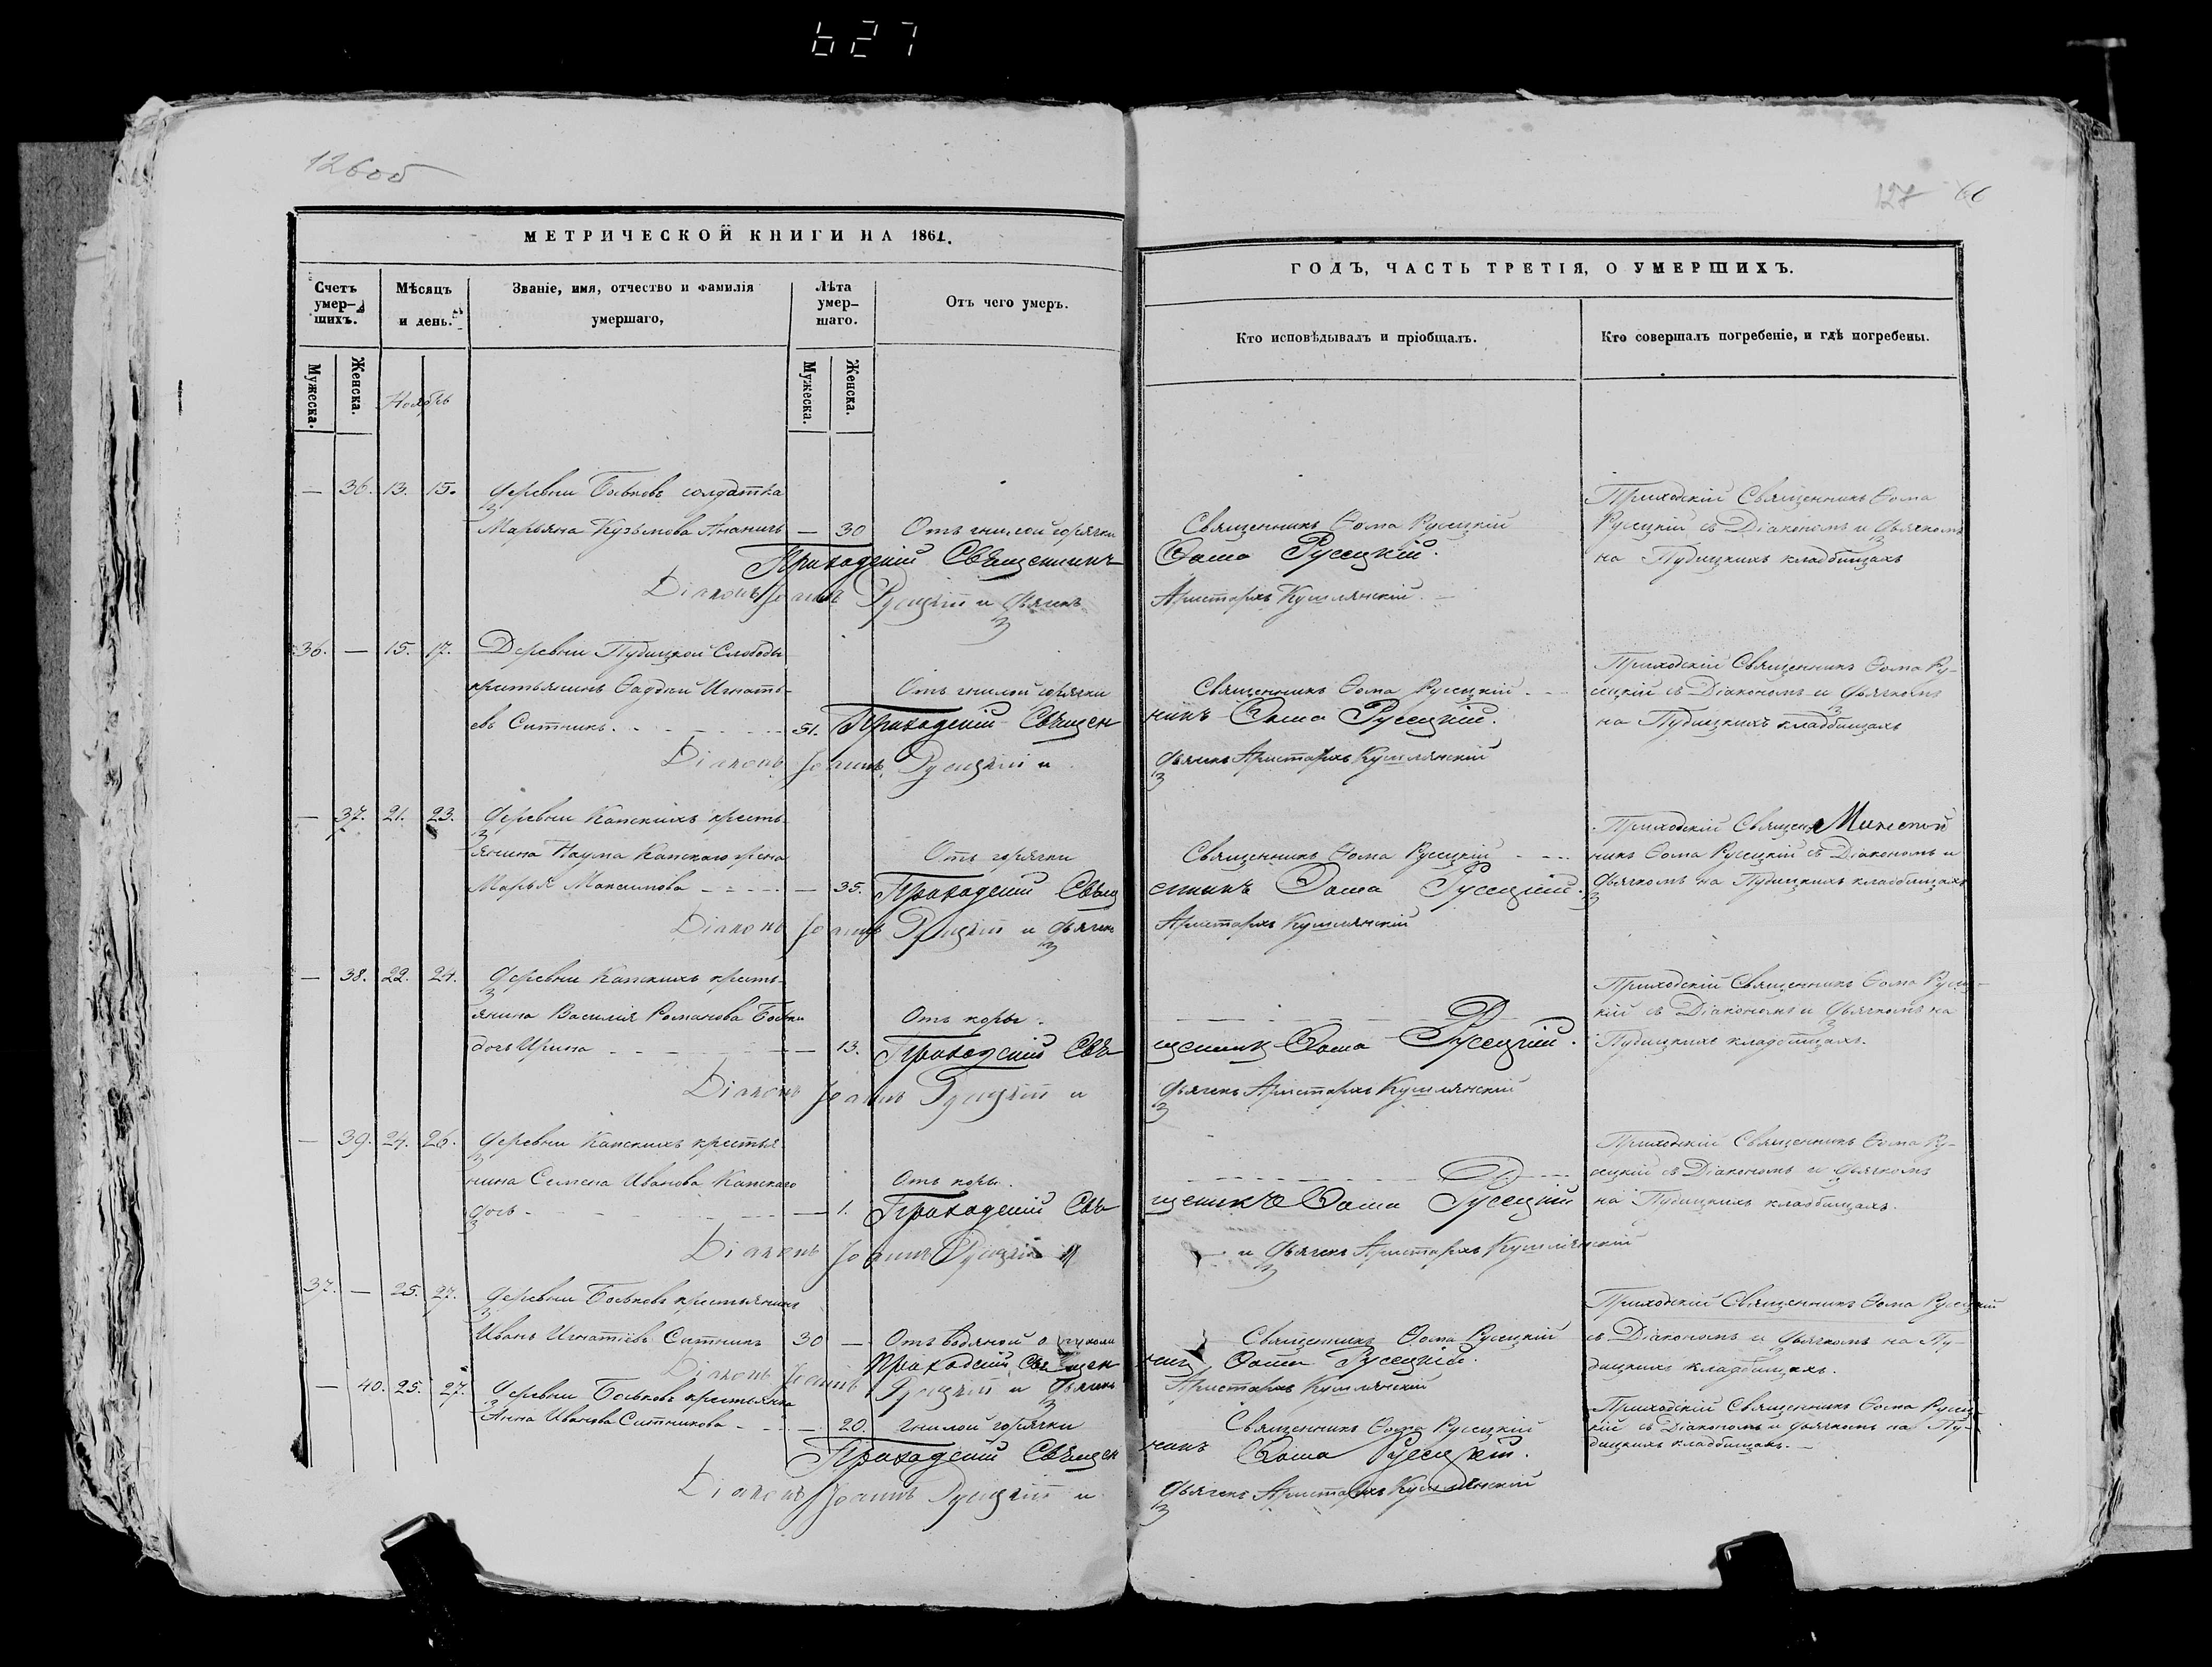 627
126об
127 66
МЕТРИЧЕСКОЙ КНИГИ НА 1861.
ГОДЪ, ЧАСТЬ ТРЕТІЯ, О УМЕРШИХЪ.
Счетъ умер-шихъ.
Мѣсяцъ и день.
Званіе, имя, отчество и фамилія умершаго,
Лѣта умер-шаго.
Отъ чего умеръ.
Кто исповѣдывалъ и пріобщалъ.
Кто совершалъ погребеніе, и гдѣ погребены.
Мужеска. Женска. Ноябрь Мужеска. Женска.
— 36. 13. 15. Деревни Боковъ солдатка
Марьяна Кузьмова Ананичъ — 30 Отъ гнилой горячки Священникъ Ѳома Русецкій
Приходскій Священникъ Ѳома
Русецкій съ Діакономъ и Дьячкомъ
на Пудицкихъ кладбищахъ
Приходскій Священникъ Ѳома Русецкій.
Діаконъ Іоаннъ Русецкій и Дьячекъ Аристархъ
36. — 15. 17. Деревни Пудицкой Слободы
крестьянинъ Ѳаддей Игнать-
евъ Ситникъ. 51. Отъ гнилой горячки Священникъ Ѳома Русецкій
Приходскій Священникъ Ѳома Ру-
сецкій съ Діакономъ и Дьячкомъ
на Пудицкихъ кладбищахъ
Приходскій Священникъ Ѳома Русецкій.
Діаконъ Іоаннъ Русецкій и Дьячекъ Аристархъ
— 37. 21. 23. Деревни Капскихъ кресть-
янина Наума Капскаго жена
Марья Максимова — 35. Отъ горячки Священникъ Ѳома Русецкій
Приходскій Священ-
никъ Ѳома Русецкій съ Діакономъ и
Дьячкомъ на Пудицкихъ кладбищахъ
Приходскій Священникъ Ѳома Русецкій.
Діаконъ Іоаннъ Русецкій и Дьячекъ Аристархъ
— 38. 22. 24. Деревни Капскихъ кресть-
янина Василія Романова
дочь Ирина — 13. Отъ коры.
Приходскій Священникъ Ѳома Русец-
кій съ Діакономъ и Дьячкомъ на
Пудицкихъ кладбищахъ.
Приходскій Священникъ Ѳома Русецкій.
Діаконъ Іоаннъ Русецкій и Дьячекъ Аристархъ
— 39. 24. 26. Деревни Капскихъ крестья-
нина Семена Иванова Капскаго
дочь — 1. Отъ коры.
Приходскій Священникъ Ѳома Ру-
сецкій съ Діакономъ и Дьячкомъ
на Пудицкихъ кладбищахъ.
Приходскій Священникъ Ѳома Русецкій
Діаконъ Іоаннъ Русецкій и Дьячекъ Аристархъ
37. — 25. 27. Деревни Боковъ крестьянинъ
Иванъ Игнатіевъ Ситникъ 30 — Отъ водяной Священникъ Ѳома Русецкій
Приходскій Священникъ Ѳома Русецкій
съ Діакономъ и Дьячкомъ на Пу-
дицкихъ кладбищахъ.
Приходскій Священникъ Ѳома Русецкій.
Діаконъ Іоаннъ Русецкій и Дьячекъ Аристархъ
— 40. 25. 27. Деревни Боковъ крестьянка
Анна Иванова Ситникова — 20. гнилой горячки Священникъ Ѳома Русецкій
Приходскій Священникъ Ѳома Русец-
кій съ Діакономъ и Дьячкомъ на Пу-
дицкихъ кладбищахъ.
Приходскій Священникъ Ѳома Русецкій.
Діаконъ Іоаннъ Русецкій и Дьячекъ Аристархъ